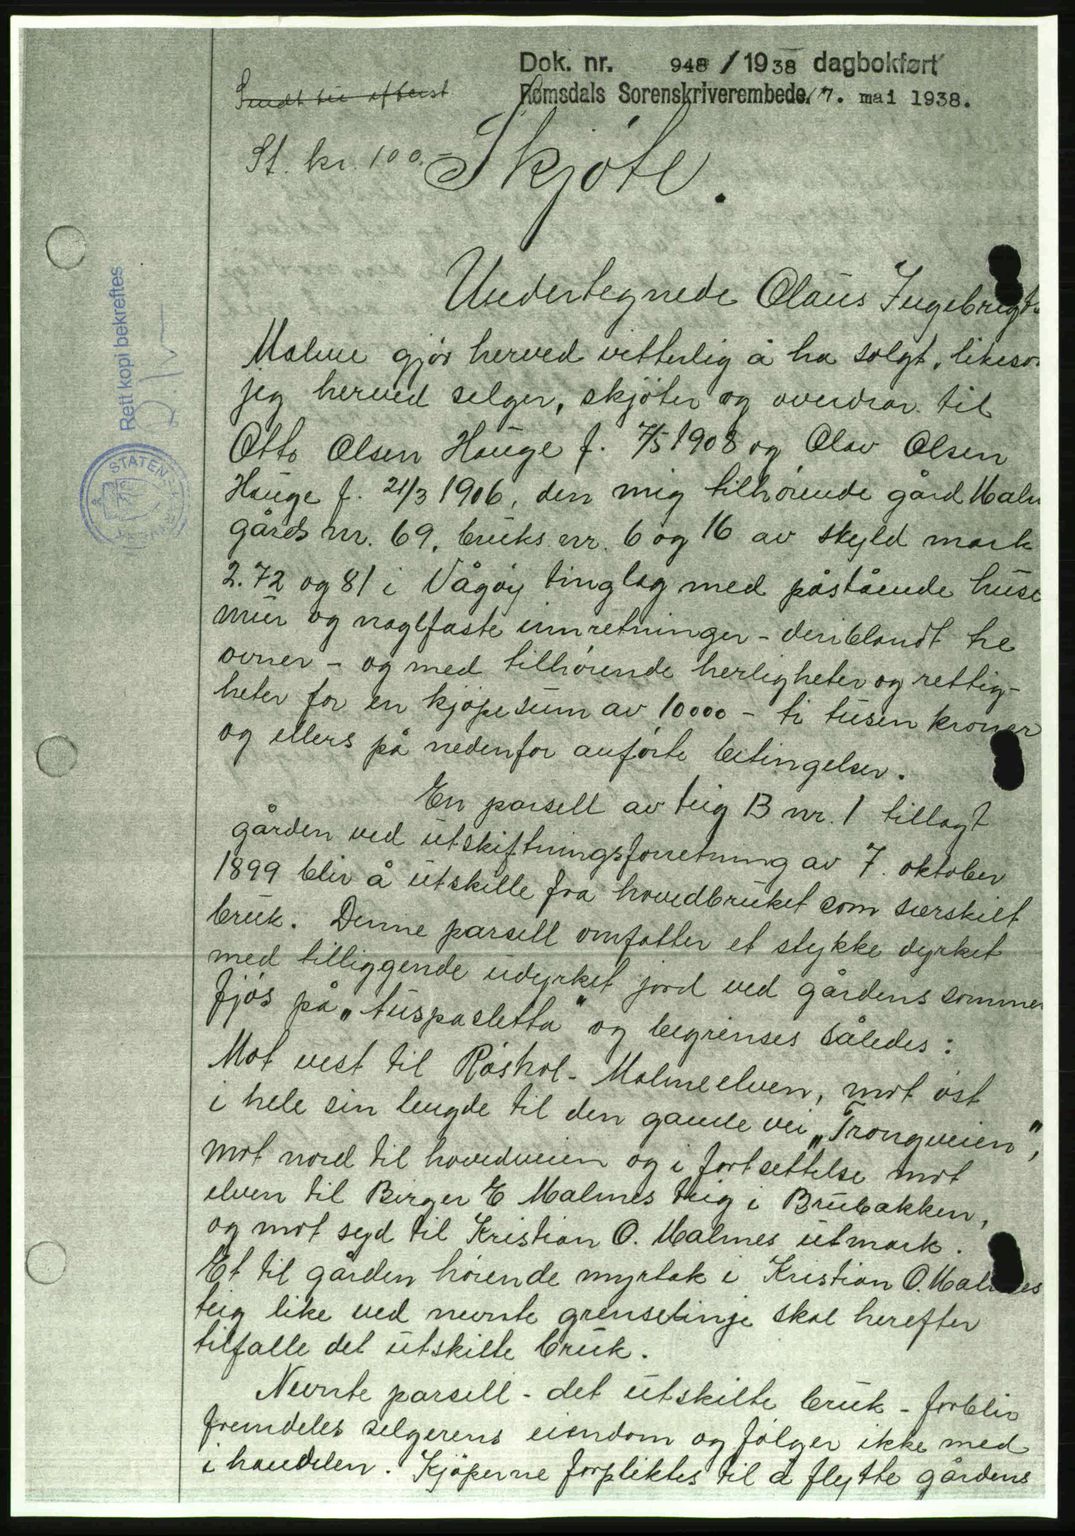 Dok. nr. 948 / 1938 dagbokført
Romsdals Sorenskriverembede, 7. mai 1938.
St. kr. 100.-
Skjöte.
Rett kopi bekreftes
STATEN
Undertegnede Olaus Ingebrigts
Malme gjör herved vitterlig å ha solgt, likeso
jeg herved selger, skjöter og overdrar til
Otto Olsen Hauge f. 7/5 1908 og Olav Olsen
Hauge f. 21/3 1906, den mig tilhörende gård Malm
gårds nr. 69, bruks nr. 6 og 16 av skyld mark
2.72 og 81 i Vågöy tinglag med påstående huse
mur og naglfaste innretninger - deriblandt tre
ovner - og med tilhörende herligheter og rettig-
heter for en kjöpesum av 10000 - ti tusen kroner
og ellers på nedenfor anförte betingelser.
En parsell av teig B nr. 1 tillagt
gården ved utskiftningsforretning av 7. oktober
1899 blir å utskille fra hovedbruket som særskilt
bruk. Denne parsell omfatter et stykke dyrket
med tilliggende udyrket jord ved gårdens sommer
fjös på "Tuspasletta" og begrenses således:
Mot vest til Röshol-Malmeelven, mot öst
i hele sin lengde til den gamle vei "Trongveien",
mot nord til hovedveien og i fortsettelse mot
elven til Birger E Malmes teig i Brubakken,
og mot syd til Kristian O. Malmes utmark.
Et til gården hörende myrtak i Kristian O. Malmes
teig like ved nevnte grenselinje skal herefter
tilfalle det utskilte bruk.
Nevnte parsell - det utskilte bruk - forblir
fremdeles selgerens eiendom og fölger ikke med
i handelen. Kjöperne forpliktes til å flytte gårdens